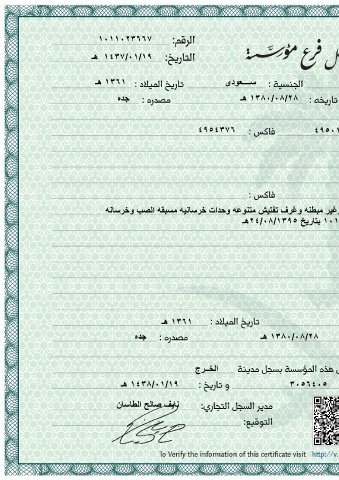 الرقم: ١٠١١٠٢٣٦٦٧
ل فرع مؤسسة
التاريخ: ١٤٣٧/٠١/١٩ هـ
الجنسية : سعودى تاريخ الميلاد : ١٣٦١ هـ
تاريخه : ١٣٨٠/٠٨/٢٨ هـ مصدره : جده
فاكس : ٤٩٥٤٣٧٦
فاكس :
غير مبطنه وغرف تفتيش متنوعه وحدات خرسانيه مسبقه الصب وخرسانه
بتاريخ ٢٤/٠٨/١٣٩٥هـ
تاريخ الميلاد : ١٣٦١ هـ
١٣٨٠/٠٨/٢٨ هـ مصدره : جده
هذه المؤسسة بسجل مدينة الخرج
٣٠٥٦٤٠٥ و تاريخ : ١٤٣٨/٠١/١٩ هـ
مدير السجل التجاري: نايف صالح الطاسان
التوقيع:
To Verify the information of this certificate visit http://v